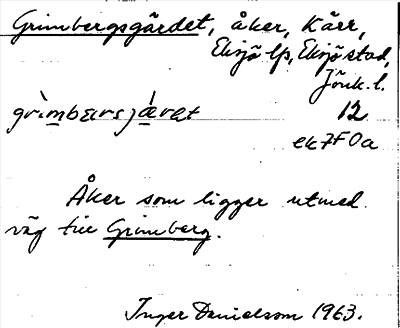 Grimbergsgärdet, åker, Kärr,
Eksjö lfs, Eksjö stad,
Jönk. l.
12
ek 7F0a
Åker som ligger utmed
väg till Grimberg.
Inger Danielsson 1963.